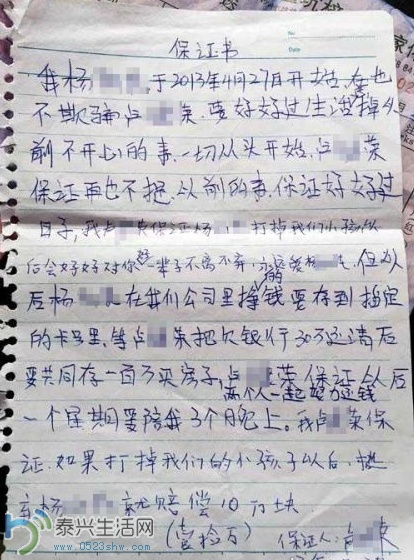 No:
Date:
保证书
我杨 于2013年4月27日开始, 在也
不欺骗卢 荣, 要好好过生活掉从
前不开心的事, 一切从头开始, 卢 荣
保证再也不把从前的事, 保证好好过
日子, 我卢 荣保证杨 打掉我们小孩以
后会好好对你好一辈子不离不弃, 永远爱杨 但从
后杨 在我们公司里挣钱要存到指定
的卡号里, 等卢 荣把欠银行30万还清后
要共同存一百万买房子, 卢 荣保证从后
两个人一起努力还钱
一个星期要陪我3个晚上。我卢 荣保
证, 如果打掉我们的小孩子以后,
杨 就赔偿10万块
(壹拾万) 保证人:卢
泰兴生活网
www.0523shw.com